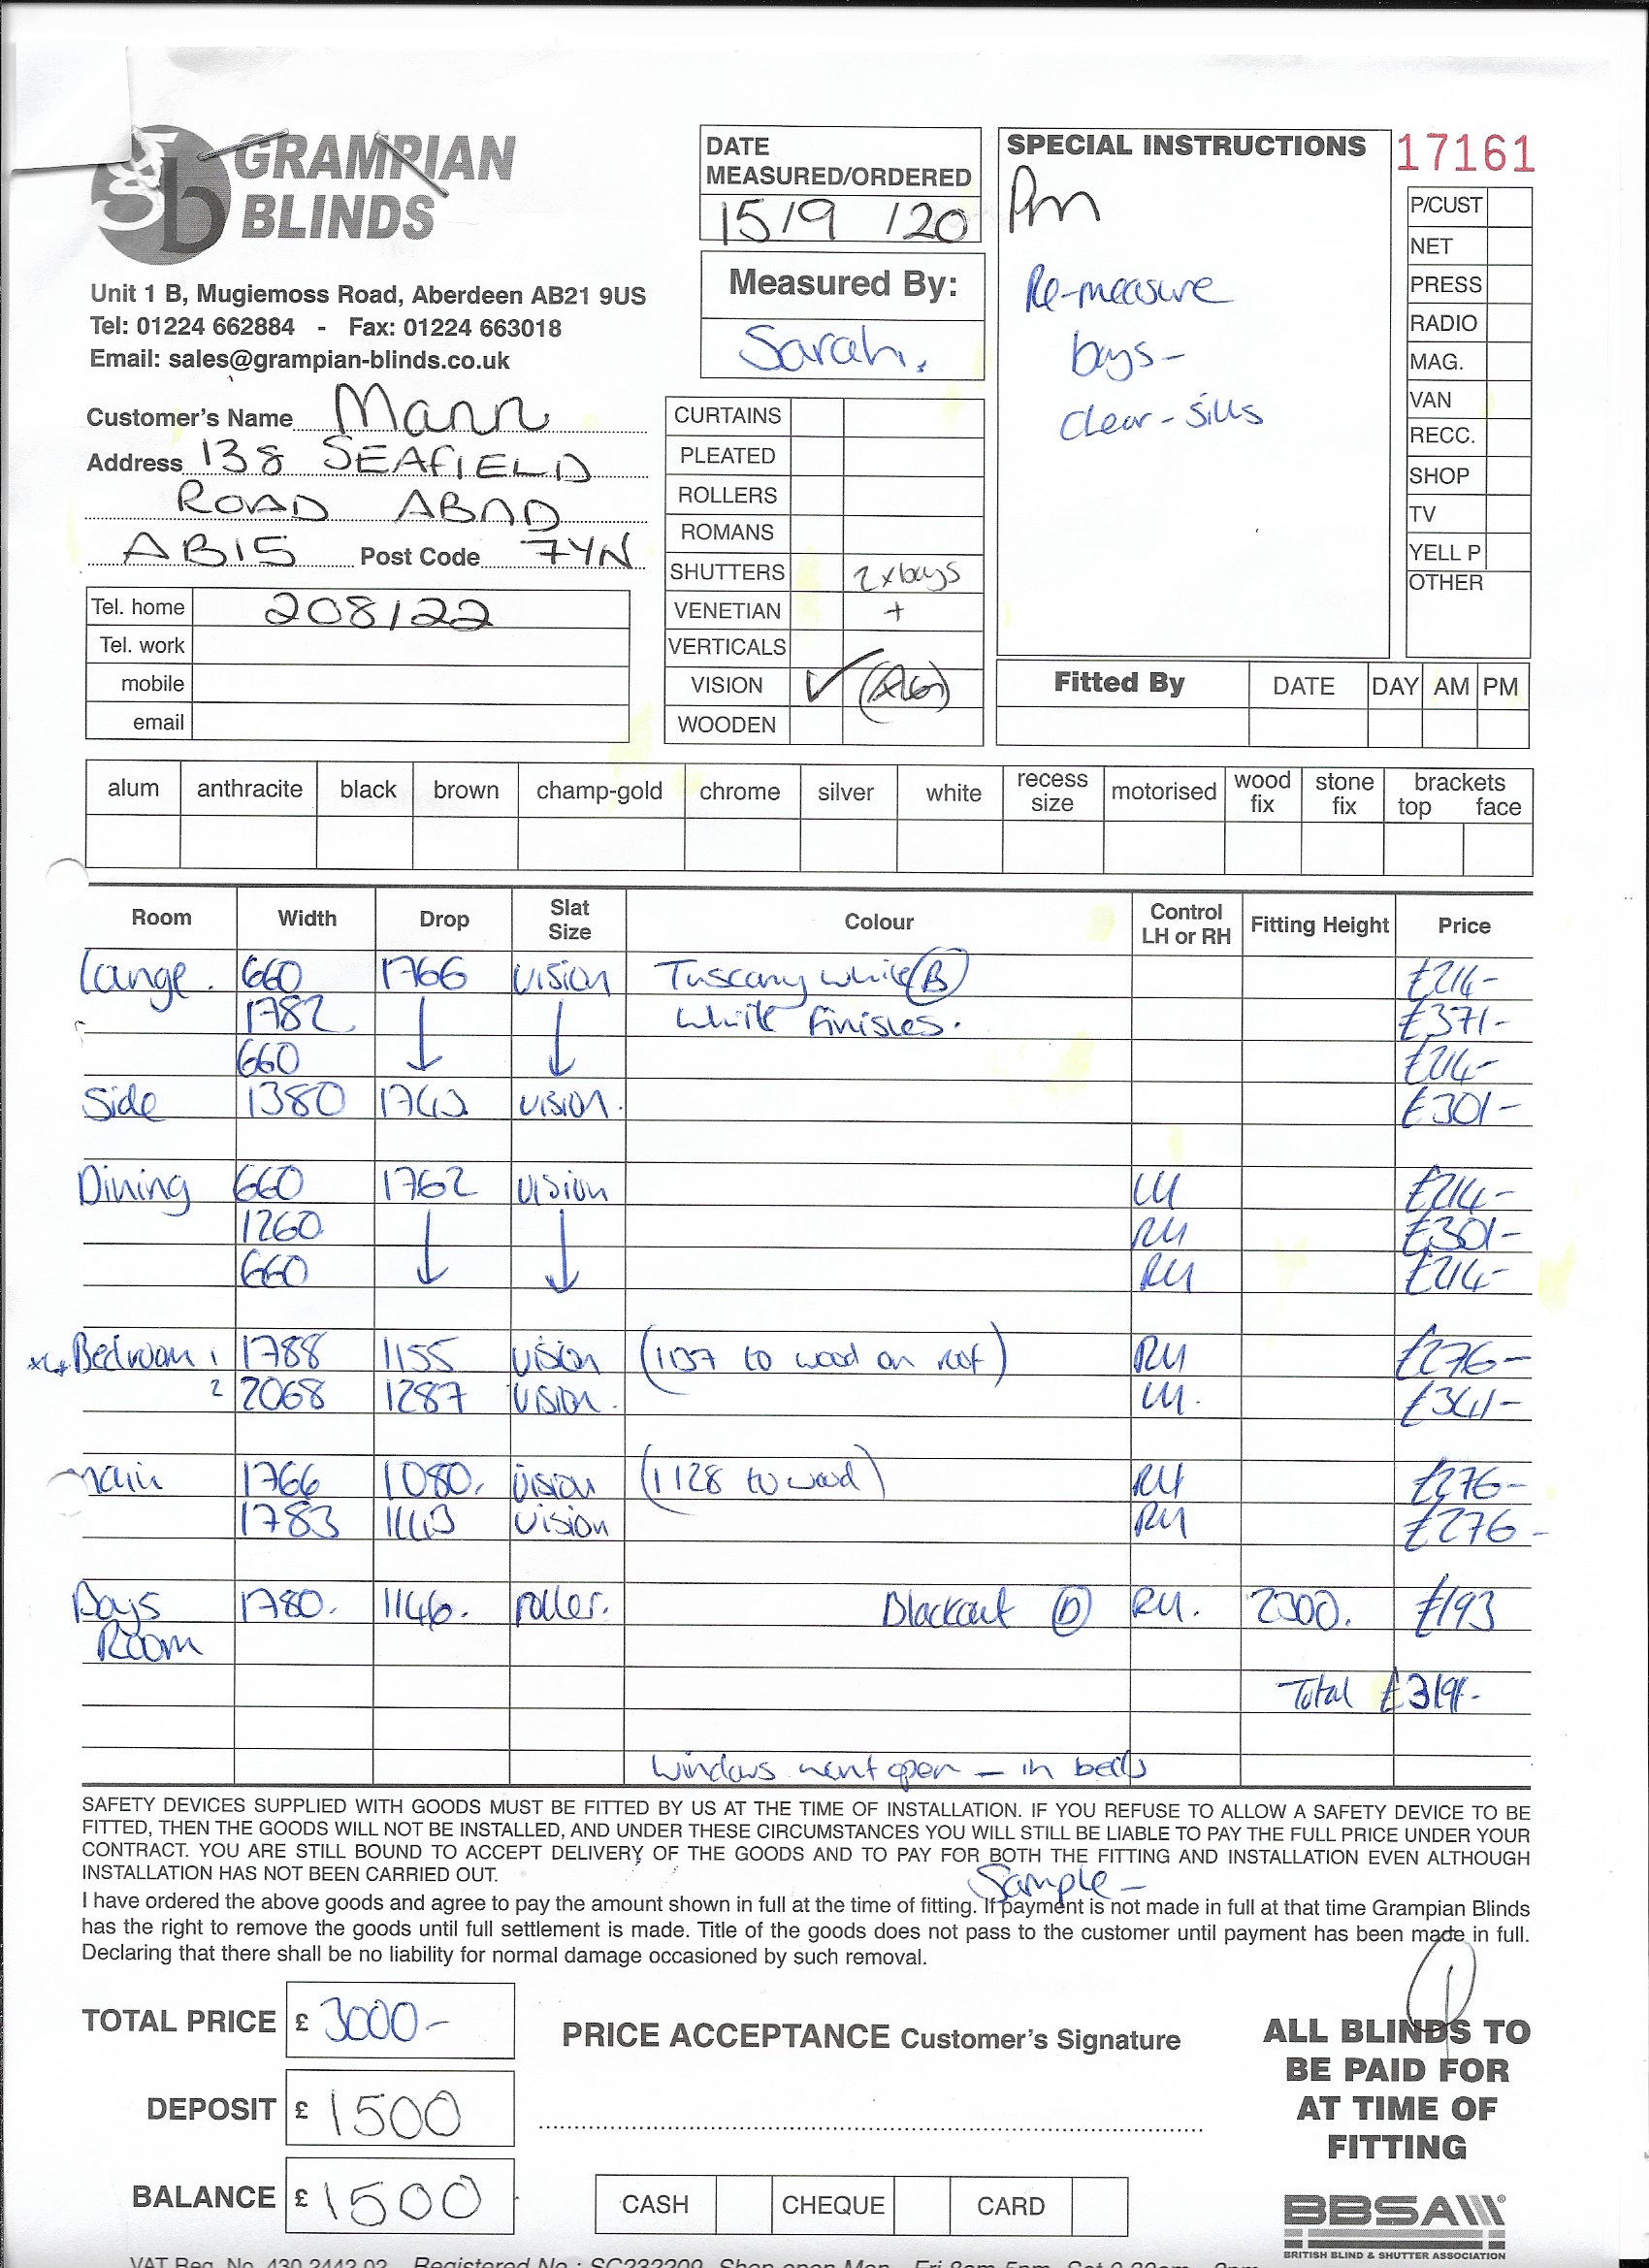 GRAMPIAN
BLINDS
Unit 1 B, Mugiemoss Road, Aberdeen AB21 9US
Tel: 01224 662884 - Fax: 01224 663018
Email: sales@grampian-blinds.co.uk
DATE
MEASURED/ORDERED
15/9 /20
Measured By:
Sarah.
SPECIAL INSTRUCTIONS
Pm
Re-measure
bays-
clear-sills
17161
P/CUST
NET
PRESS
RADIO
MAG.
VAN
RECC.
SHOP
TV
YELL P
OTHER
Customer's Name Mann
Address 138 SEAFIELD
ROAD ABND
AB15 Post Code 7YN
Tel. home 208122
Tel. work
mobile
email
CURTAINS
PLEATED
ROLLERS
ROMANS
SHUTTERS 2 x bays
VENETIAN +
VERTICALS
VISION ✓
WOODEN
Fitted By DATE DAY AM PM
alum anthracite black brown champ-gold chrome silver white recess size motorised wood fix stone fix brackets top face
Room Width Drop Slat Size Colour Control LH or RH Fitting Height Price
Lounge. 660 1766 vision Tuscany white (B) £214-
1782 white finishes. £371-
660 £214-
Side 1380 vision. £301-
Dining 660 1762 vision LH £214-
1260 RH £301-
660 RH £214-
Bedroom 1 1788 1155 vision (1137 to wood on roof) RH £276-
2 2068 1287 vision. LH. £341-
main 1766 1080. vision (1128 to wood) RH £276-
1783 1143 vision RH £276-
Boys 1780. 1146. roller. Blackout (D) RH. 2300. £193
Room
Total £3191-
windows went open - in beds
SAFETY DEVICES SUPPLIED WITH GOODS MUST BE FITTED BY US AT THE TIME OF INSTALLATION. IF YOU REFUSE TO ALLOW A SAFETY DEVICE TO BE
FITTED, THEN THE GOODS WILL NOT BE INSTALLED, AND UNDER THESE CIRCUMSTANCES YOU WILL STILL BE LIABLE TO PAY THE FULL PRICE UNDER YOUR
CONTRACT. YOU ARE STILL BOUND TO ACCEPT DELIVERY OF THE GOODS AND TO PAY FOR BOTH THE FITTING AND INSTALLATION EVEN ALTHOUGH
INSTALLATION HAS NOT BEEN CARRIED OUT.
Sample-
I have ordered the above goods and agree to pay the amount shown in full at the time of fitting. If payment is not made in full at that time Grampian Blinds
has the right to remove the goods until full settlement is made. Title of the goods does not pass to the customer until payment has been made in full.
Declaring that there shall be no liability for normal damage occasioned by such removal.
TOTAL PRICE £ 3000-
PRICE ACCEPTANCE Customer's Signature
DEPOSIT £ 1500
BALANCE £ 1500
CASH CHEQUE CARD
ALL BLINDS TO
BE PAID FOR
AT TIME OF
FITTING
BBSA
BRITISH BLIND & SHUTTER ASSOCIATION